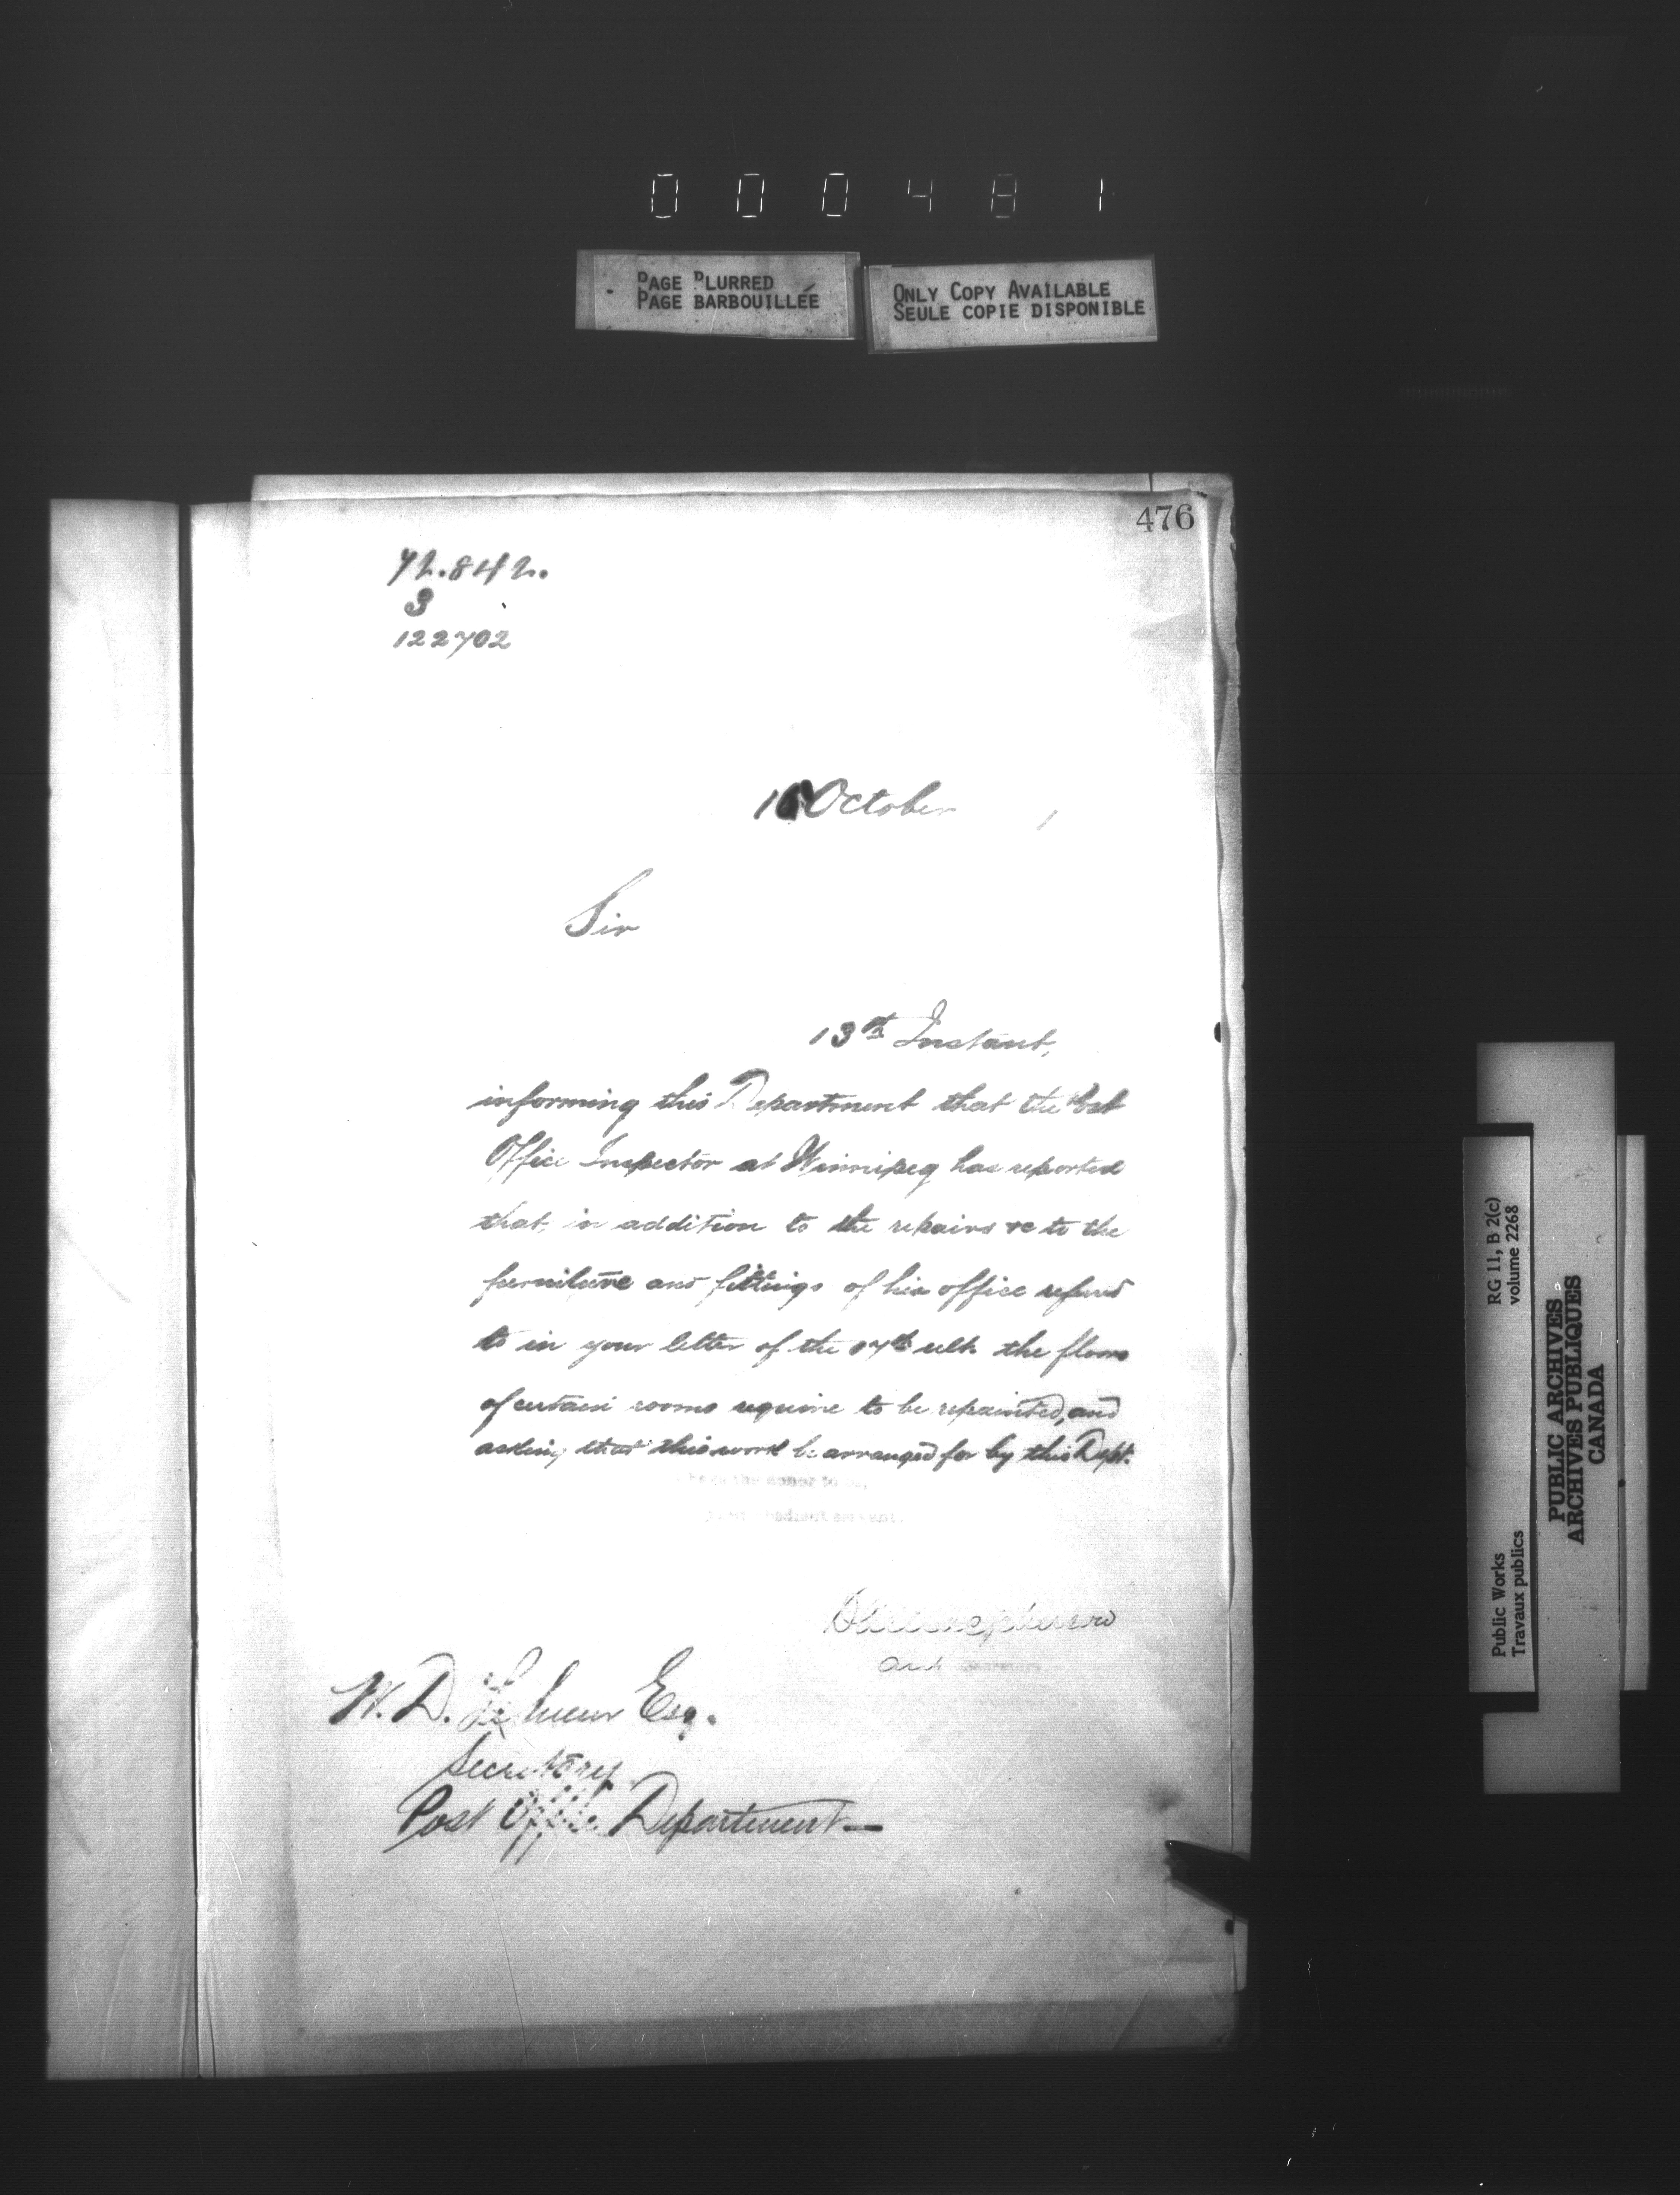 000481
PAGE BLURRED
PAGE BARBOUILLÉE
ONLY COPY AVAILABLE
SEULE COPIE DISPONIBLE
476
72.842.
3
122702
October
Sir
13th Instant,
informing this Department that the Post
Office Inspector at Winnipeg has reported
that, in addition to the repairs &c to the
furniture and fittings of his office referred
to in your letter of the 17th ult. the floors
of certain rooms require to be repainted, and
asking that this work be arranged for by this Dept.
W. D. LeSueur Esq.
Secretary
Post Office Department—
RG 11, B 2(c)
volume 2268
Public Works
Travaux publics
PUBLIC ARCHIVES
ARCHIVES PUBLIQUES
CANADA